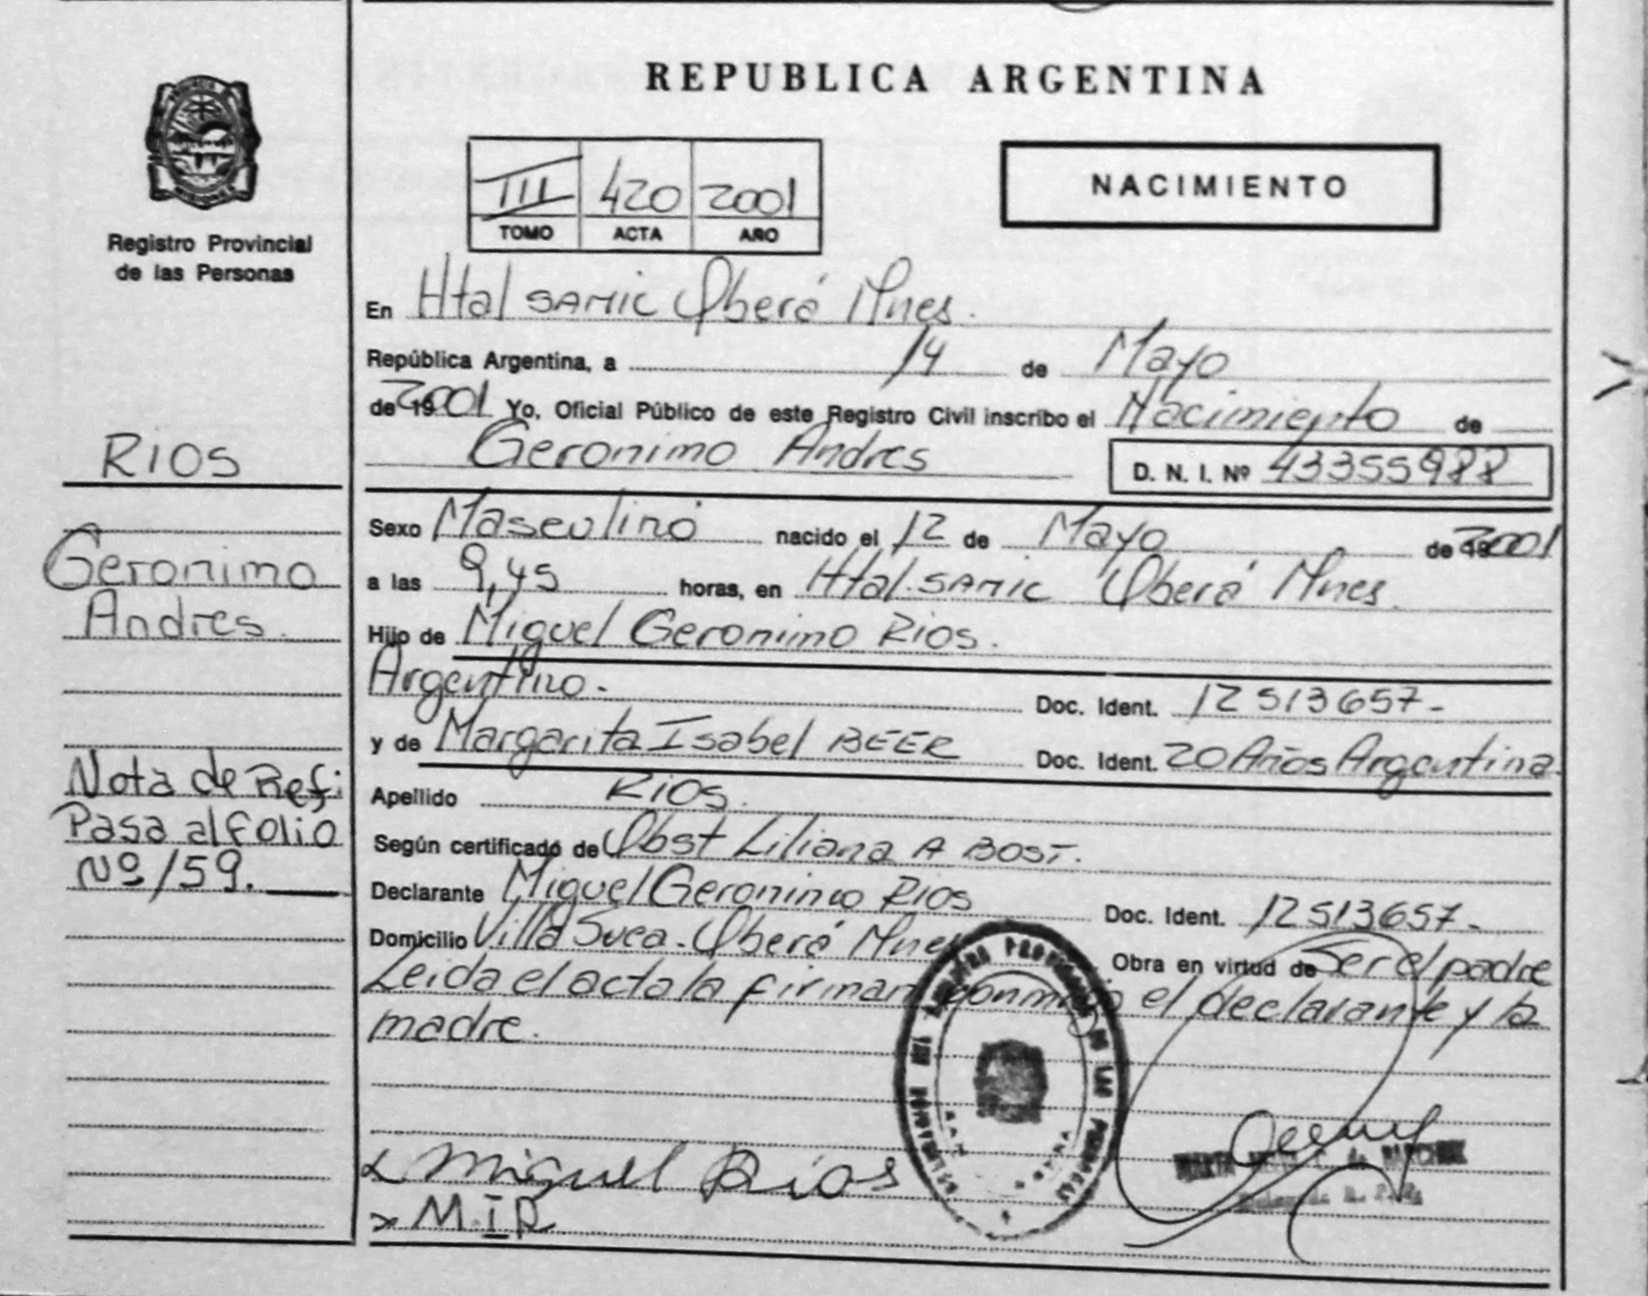 REPUBLICA ARGENTINA
III 420 2001
TOMO ACTA AÑO
NACIMIENTO
Registro Provincial
de las Personas
RIOS
Geronimo
Andres.
Nota de Ref:
Pasa al folio
Nº 159.
En Htal SAMIC Oberá Mnes.
República Argentina, a 14 de Mayo
de 2001 Yo, Oficial Público de este Registro Civil inscribo el Nacimiento de
Geronimo Andres D. N. I. Nº 43355988
Sexo Masculino nacido el 12 de Mayo de 2001
a las 9,45 horas, en Htal. SAMIC Oberá Mnes.
Hijo de Miguel Geronimo Rios.
Argentino. Doc. Ident. 12513657-
y de Margarita Isabel BEER Doc. Ident. 20 Años Argentina
Apellido RIOS.
Según certificado de Obst Liliana A BOST.
Declarante Miguel Geronimo Rios Doc. Ident. 12513657-
Domicilio Villa Svea-Oberá Mnes Obra en virtud de Ser el padre
Leida el acta la firman conmigo el declarante y la
madre.
Miguel Rios
M.I.R